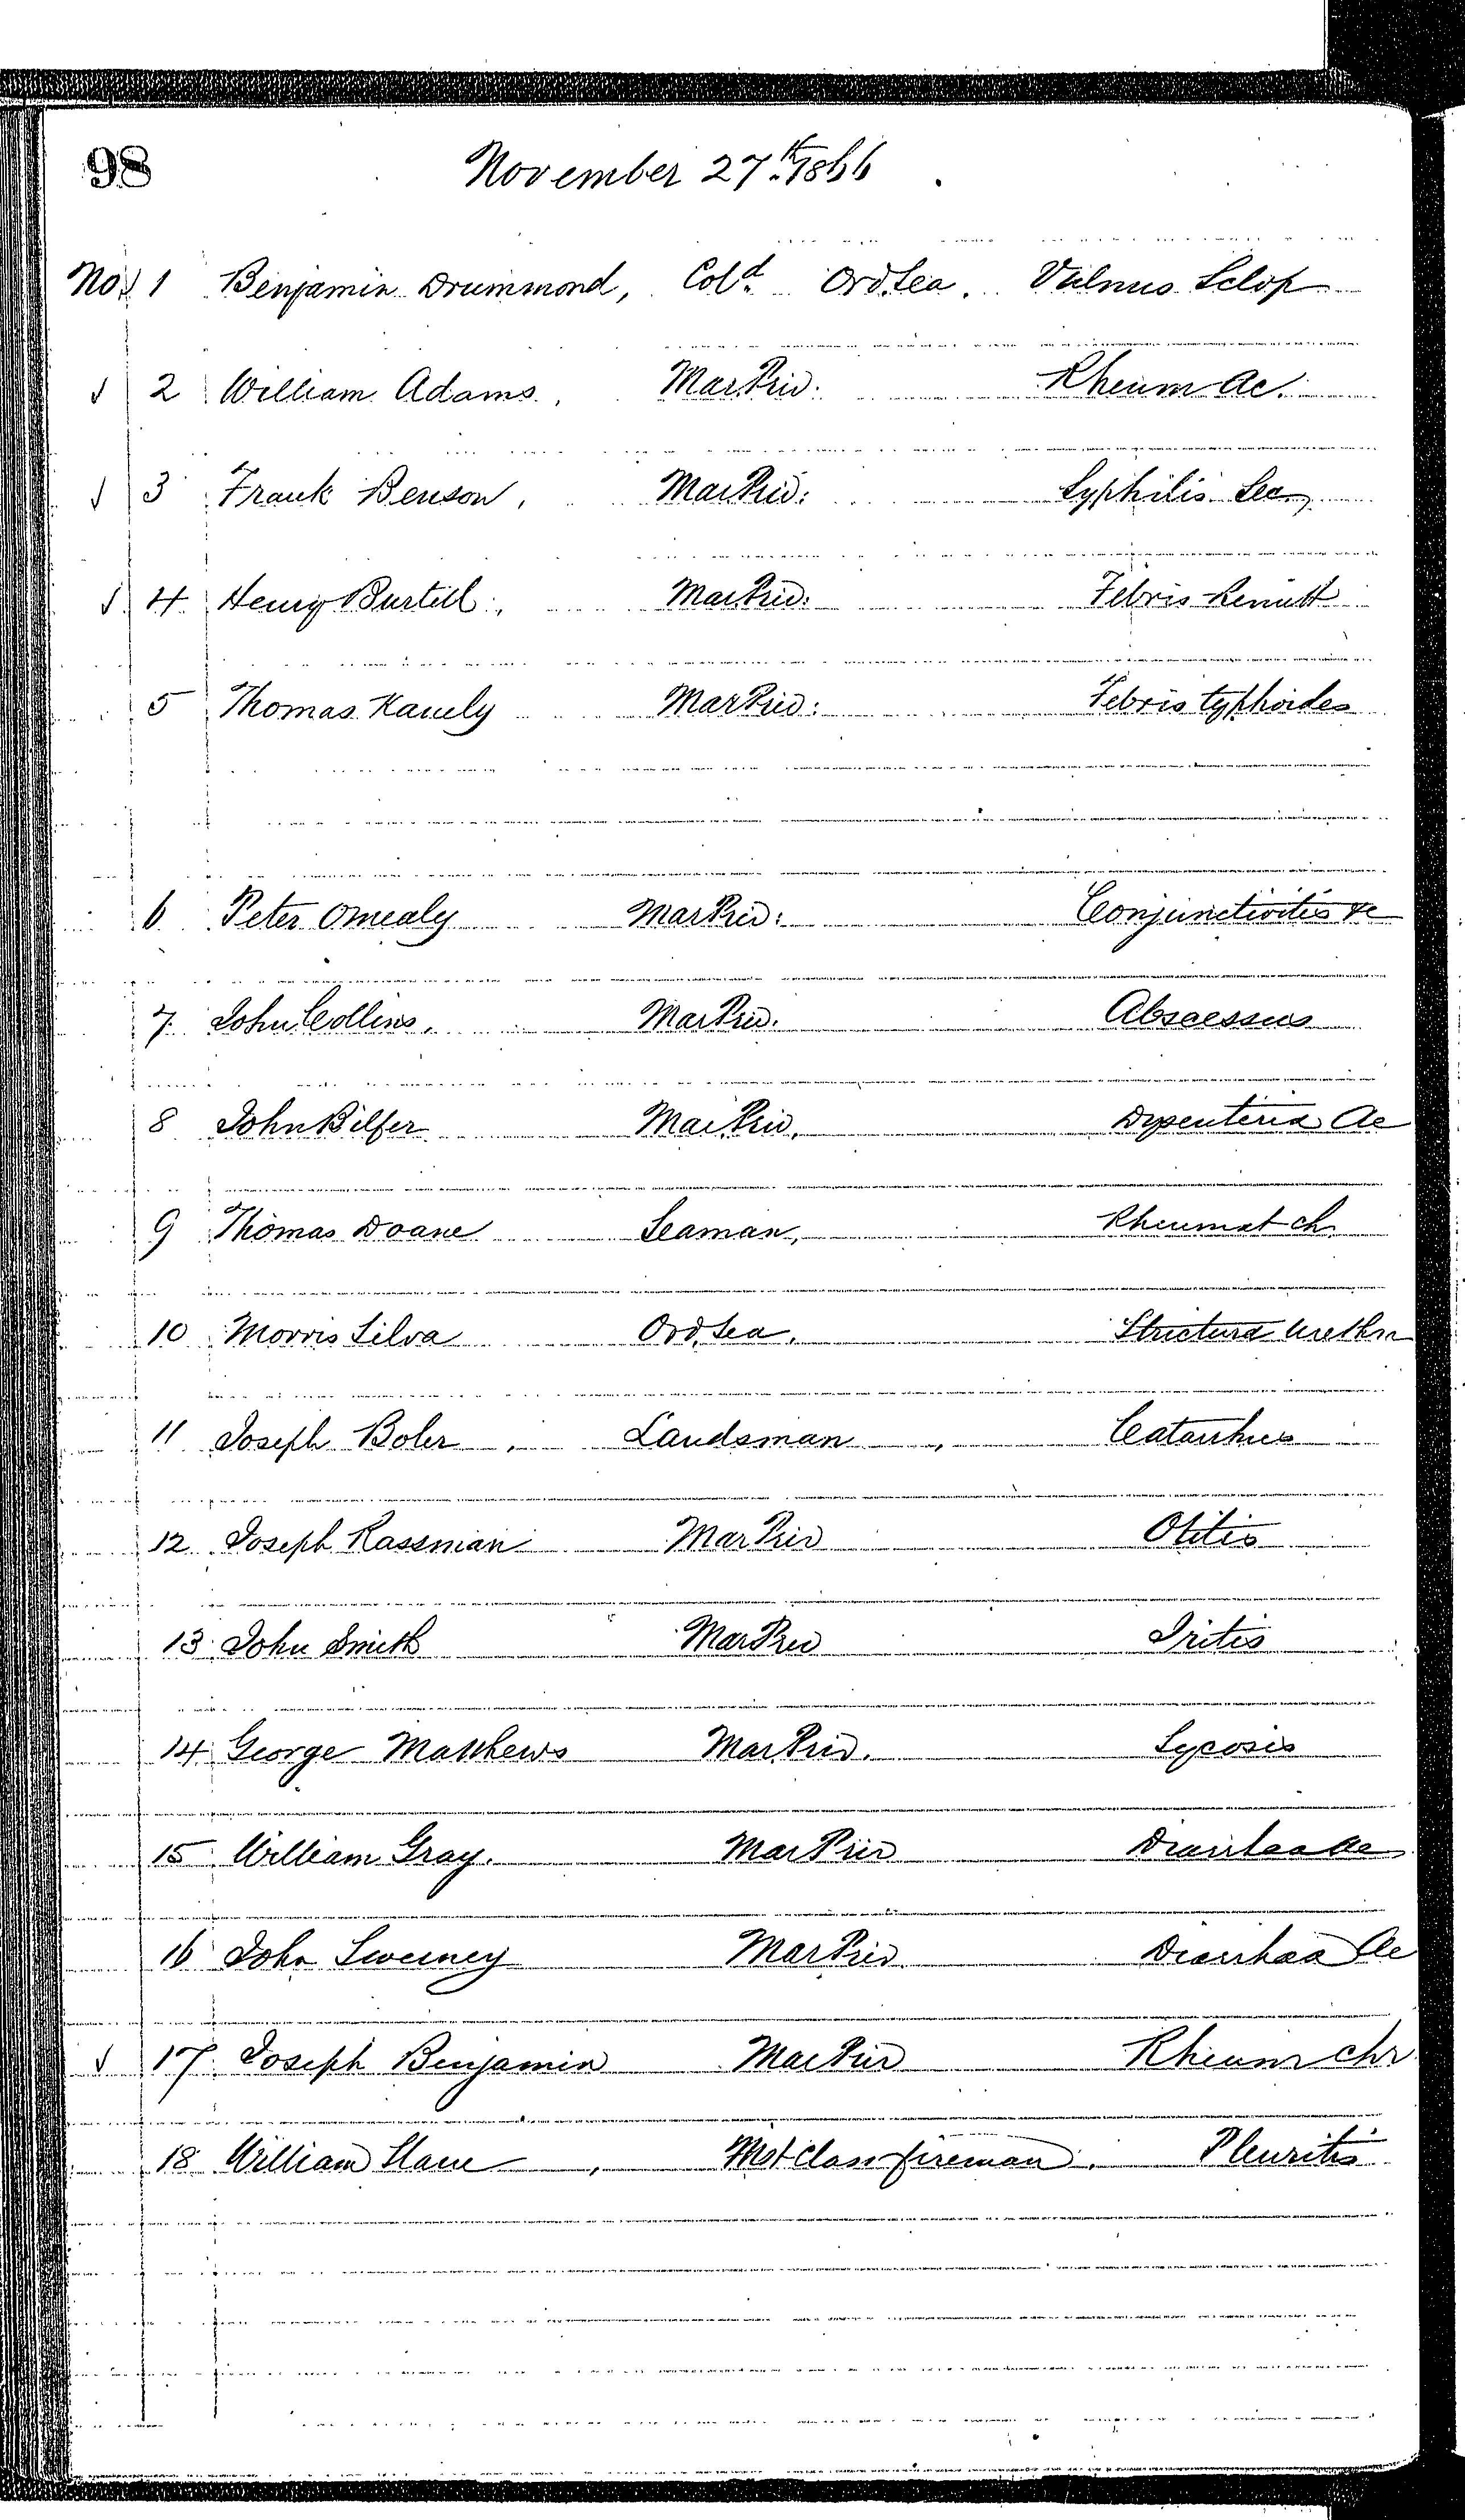 98
November 27th 1866
No. 1 Benjamin Drummond, Cold. Ord. Sea. Vulnus Sclop
√ 2 William Adams. Mar. Priv. Rheum Ac.
√ 3 Frank Benson, Mar. Priv: Syphilis Sec,
√ 4 Henry Burtell, Mar. Priv: Febris Remitt
5 Thomas Kanely Mar Priv: Febris typhoides
6 Peter Omealy Mar Priv: Conjunctivitis &c
7 John Collins, Mar Priv. Abscessus
8 John Bilfer Mar. Priv, Dysenteria Ac
9 Thomas Doane Seaman, Rheumat ch.
10 Morris Silva Ord. Sea, Strictura Urethra
11 Joseph Boler, Landsman, Catarrhus
12 Joseph Rassman Mar Priv Otitis
13 John Smith Mar Priv Iritis
14 George Matthews Mar. Priv. Sycosis
15 William Gray. Mar Priv Diarrhoea Ac
16 John Sweeney Mar Priv. Diarrhoea Ac
√ 17 Joseph Benjamin Mar Priv Rheum chr
18 William Slaue, 1st Class fireman. Pleuritis